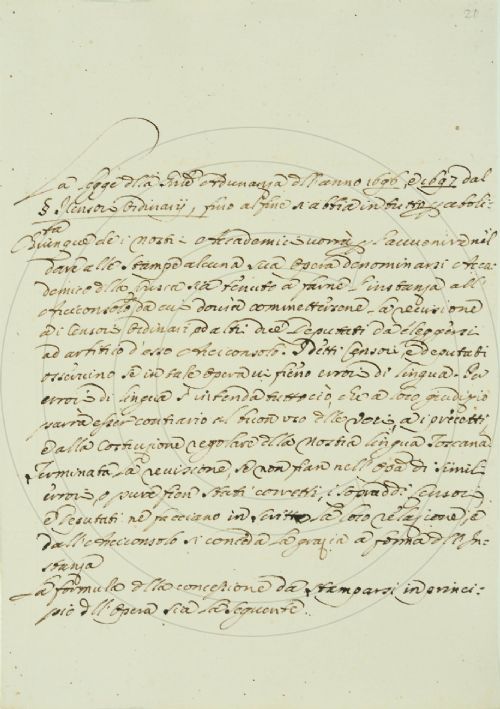 20
La legge della sud.a ordinanza dell'anno 1696, e 1697 dal
§ I Censori Ordinarij, fino al fine s'abbia in tutto p. aboli-
ta
Chiunque de i nostri Accademici vorrà p. l'avvenire nel
dare alle Stampe alcuna sua Opera denominarsi Acca-
demico della Crusca sia tenuto a farne l'instanza all'
Arciconsolo, da cui dovrà commettersene la revisione
a i Censori Ordinarij, o da altri due Deputati da eleggersi
ad arbitrio d'esso Arciconsolo. I detti Censori, e Deputati
osservino se in tale Opera vi sieno errori di lingua. Per
errori di lingua s'intenda tutto ciò, che a loro giudizio
parrà esser contrario al buon uso delle voci, a i precetti
e alla Costruzione regolare della nostra lingua Toscana
Terminata la revisione se non sian nell'Op.a di simili
errori, o pure sien stati corretti, i sopradd.i Censori
e Deputati ne facciano in scritto la loro relazione, e
dall'Arciconsolo si conceda la grazia a forma dell'In-
stanza
La formula della concessione da stamparsi in princi-
pio dell'Opera sia la seguente